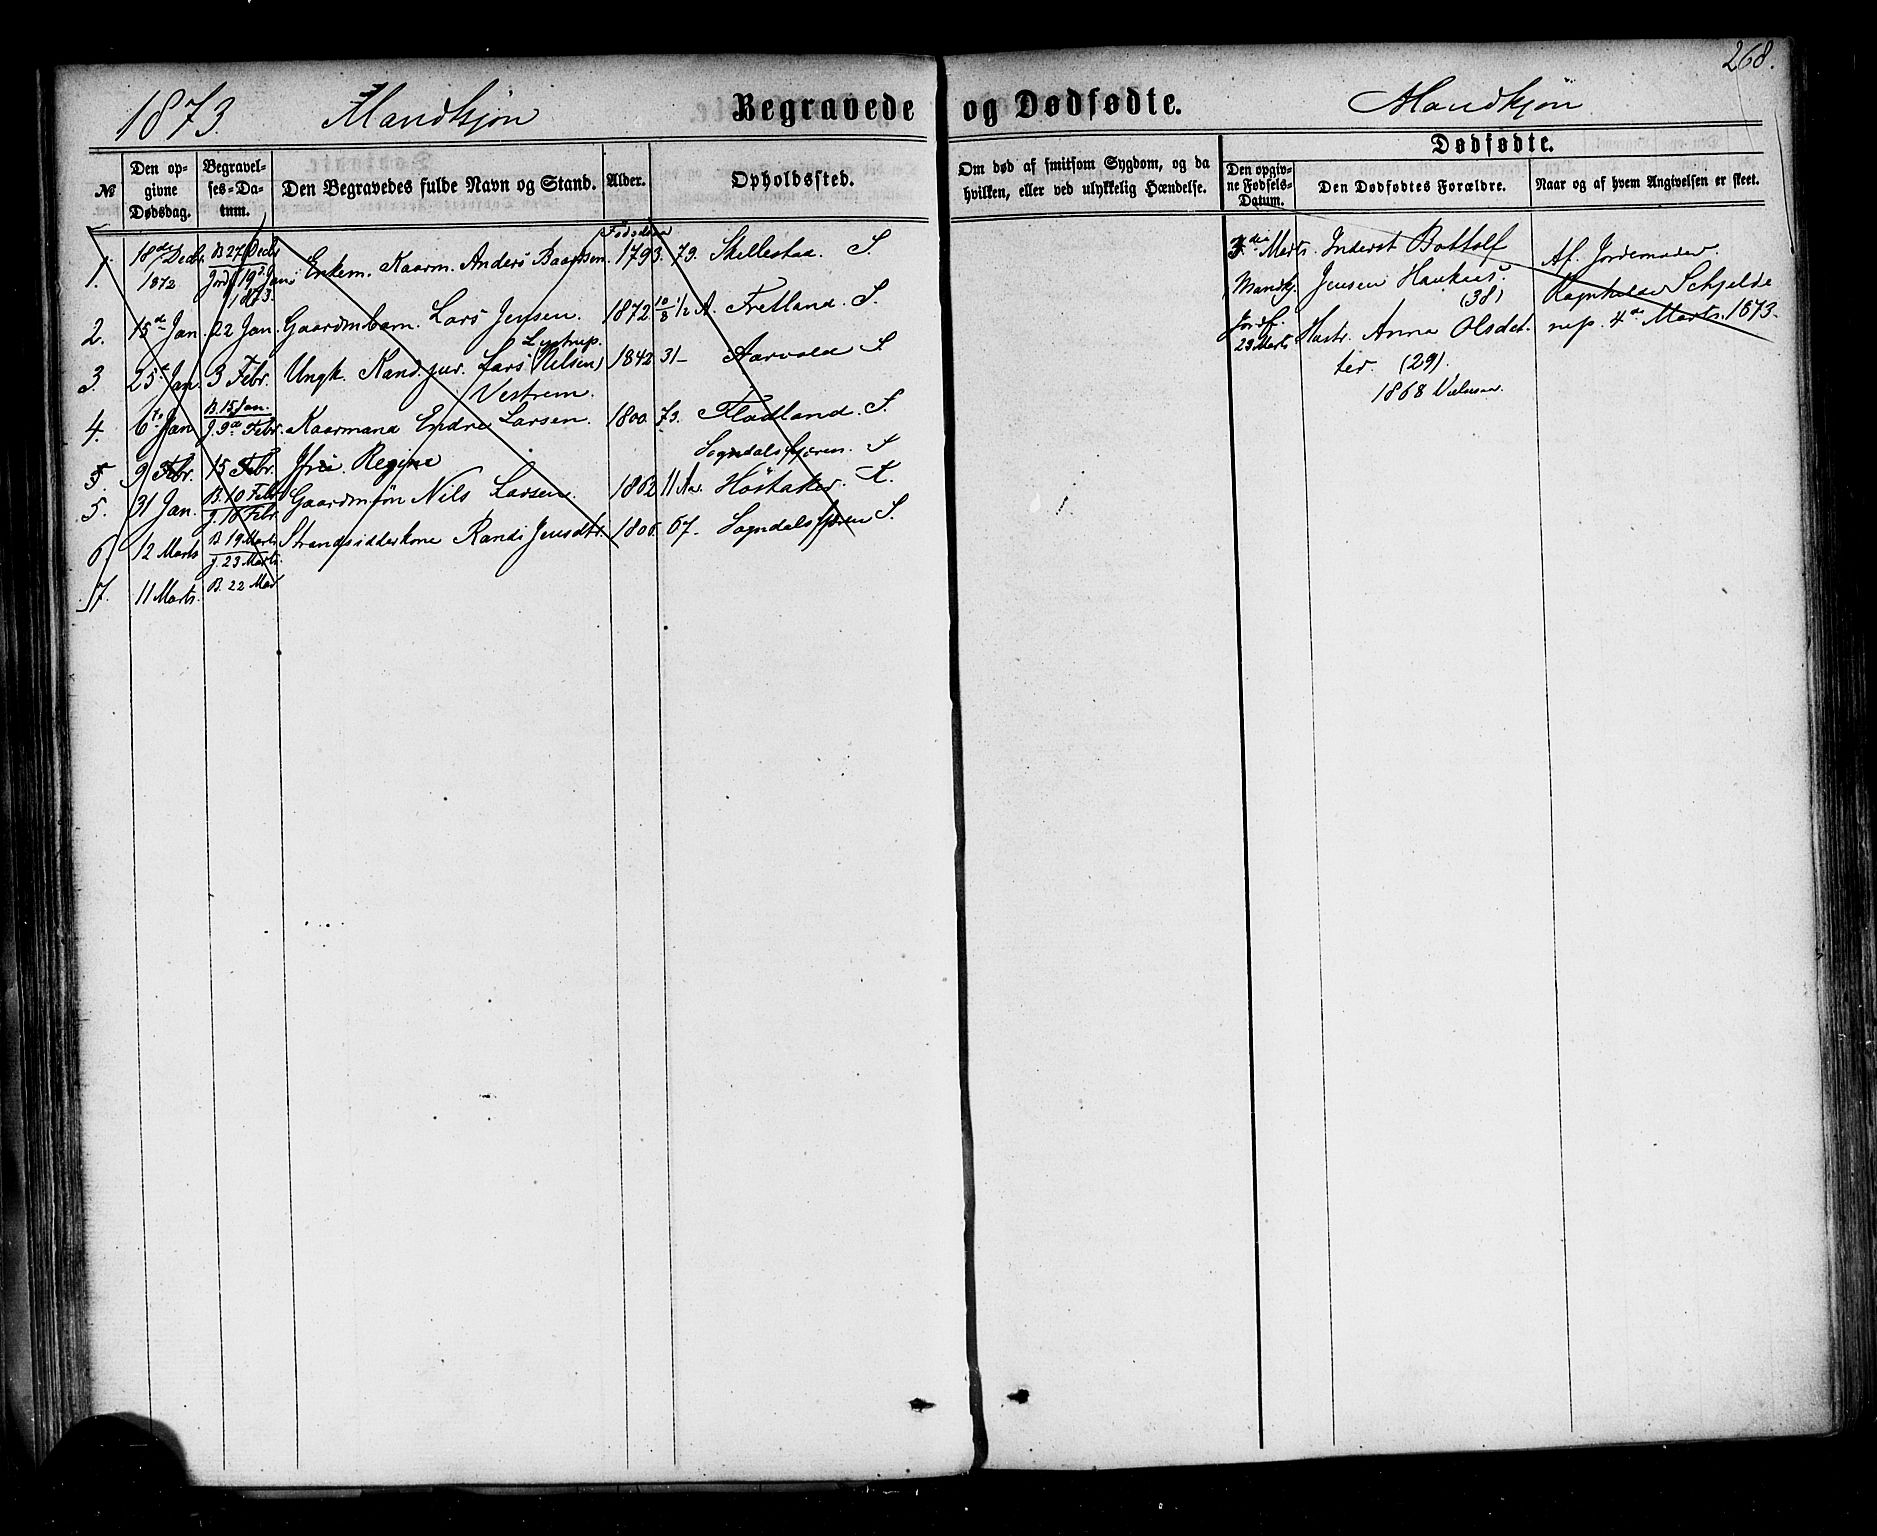 268.
1873. Mandkjøn Begravede og Dødfødte. Mandkjøn
№
Den opgivne Dødsdag.
Begravelses-Datum.
Den Begravedes fulde Navn og Stand.
Alder.
Opholdssted.
Om død af smitsom Sygdom, og da hvilken, eller ved ulykkelig Hændelse.
Dødfødte.
Den opgivne Fødsels-Datum.
Den Dødfødtes Forældre.
Naar og af hvem Angivelsen er skeet.
1. 18de Decbr. 1872 B 27 Decbr Jordf. 19 Jan 1873. Enkem. Kaarm. Anders 1793. 79. Skellestad. S.
2. 15de Jan. 22 Jan. Gaardmbarn. Lars Jensen. 1872 10/8 1/2 A. Fretland. S.
Lystrup.
3. 25de Jan. 3 Febr. Ungk. Kand. jur. Lars (Nilsen) 1842 31- Aarvold S
Vestrem.
4. 6te Jan B. 15 Jan. J. 9de Febr. Kaarmand Endre Larsen. 1800. 73. Flodland. S.
5. 9 Febr. 15 Febr. Jfr Regine Sogndalsfjæren. S
5. 31 Jan. B. 10 Febr J. 16 Febr. Gaardmsøn Nils Larsen. 1862 11 Aar. Høstaker. K.
6 12 Marts B 19 Marts J. 23 Marts. Strandsidderkone Randi Jensdtr. 1806. 67. Sogndalsfjæren S.
7. 11 Marts. B. 22 Mar
3die Marts. Inderst Bottolf
Mandkj. Jensen Haukaas.
(38)
Jordf. 23 Marts Hustr. Anna Olsdat-
ter. (29).
1868
Af Jordemoder
Ragnhilda Schjelde
rup. 4de Marts 1873.